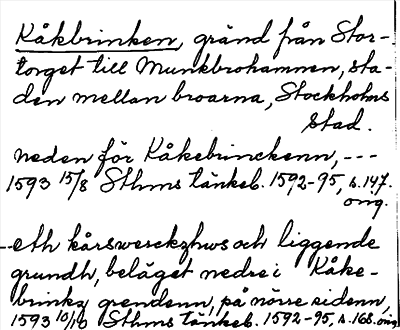 Kåkbrinken, gränd från Stor-
torget till Munkbrohamnen, sta-
den mellan broarna, Stockholms
stad.
neden för Kåkebrinckenn, ---
1593 15/8 Sthms tänkeb. 1592-95, s. 147.
orig.
--eth kårswerckzhws och liggende
grundh, beläget nedre i Kåke-
brinkz grendenn, på nörre sidenn,
1593 10/10 Sthms tänkeb. 1592-95, s. 168. orig